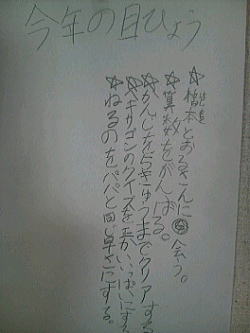 今年の目ひょう
☆橋本とおるさんに会う。
☆算数をがんばる。
☆かんじを5きゅうまでクリアする
☆ヘキサゴンのクイズを正かいいっぱいにする
☆ねるのをパパと同じ早さにする。